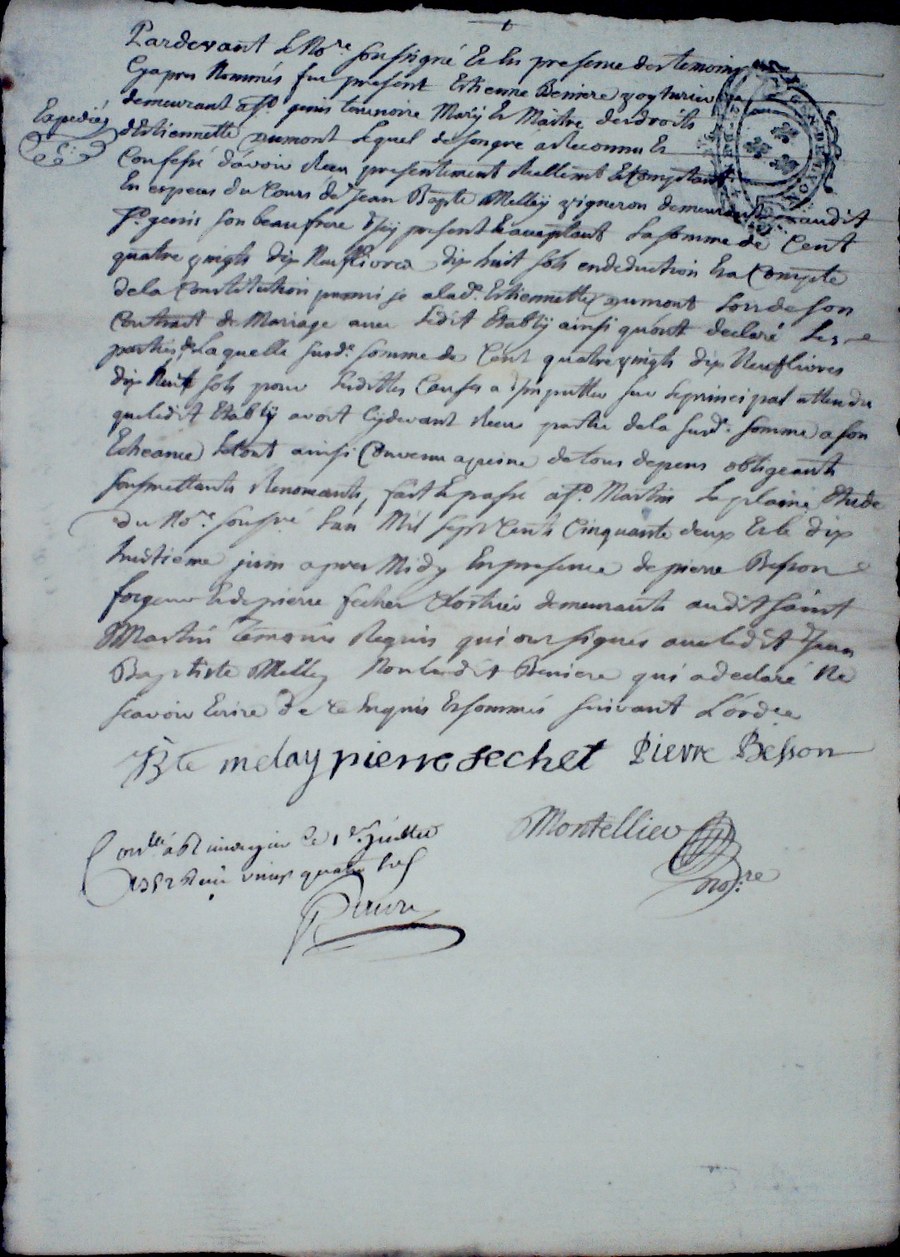 Pardevant le No.re soussigné Et En presence des temoins
Cyapres Nommés fut present Estienne Beniere voyturier
demeurant a S.t genis terrenoire Mary Et Maitre des droits
Expediée
d'Estiennette Dumont Lequel de son gre a Reconnu Et
Confessé d'avoir Receu presentement Reellement Et Comptant
En especes du Cours de Jean Bapte Melley vigneron demeurant audit
S.t genis son beaufrere Icy present Et acceptant La somme de Cent
quatre vingts dix Neuf livres dix huit sols en deduction Et a Compte
de la Constitution promise a lad.e Estiennette Dumont Lors de son
Contract de Mariage avec Ledit Etably ainsi qu'ont declaré Les
parties, Laquelle surd.e somme de Cent quatre vingts dix Neuf livres
dix huit sols pour Lesdittes Causes a Imputter sur Le principal attendu
que Ledit Etably avoit Cydevant Receu partie de la surd.e somme a son
Echeance Le tout ainsi Convenu a peine de tous depens obligeants
soumettants Renonceants, fait Et passé a S.t Martin La plaine Etude
du No.re sousné Lan Mil sept Cents Cinquante deux Et le dix
huitieme juin apres Midy En presence de pierre Besson
forgeur Et de pierre sechet demeurants audit saint
Martin temoins Requis qui ont signés avec Ledit Jean
Baptiste Melley Non Ledit Beniere qui a declaré Ne
scavoir Ecrire de ce Enquis Et sommés suivant L'ordce
Bte melay pierre sechet Pierre Besson
Montellier
no.re
Conllé à Rivedegier Le 1er Juillet
1752 Receu vingt quatre sols